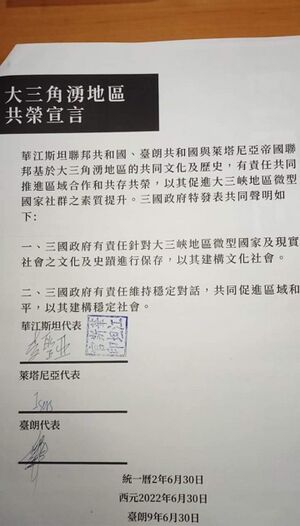 大三角湧地區
共榮宣言
華江斯坦聯邦共和國、臺朗共和國與萊塔尼亞帝國聯
邦基於大三角湧地區的共同文化及歷史，有責任共同
推進區域合作和共存共榮，以其促進大三峽地區微型
國家社群之素質提升。三國政府特發表共同聲明如
下：
一、三國政府有責任針對大三峽地區微型國家及現實
社會之文化及史蹟進行保存，以其建構文化社會。
二、三國政府有責任維持穩定對話，共同促進區域和
平，以其建構穩定社會。
華江斯坦代表
萊塔尼亞代表
臺朗代表
統一曆2年6月30日
西元2022年6月30日
臺朗9年6月30日